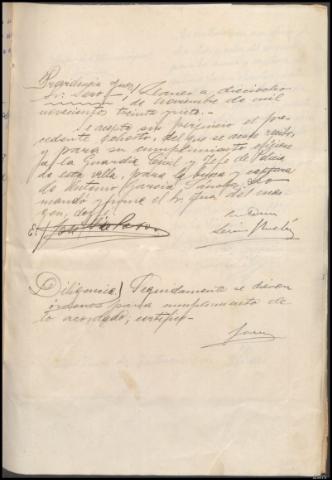 Providencia Juez
Sr. / Llanes a dieciocho
de noviembre de mil
novecientos treinta y siete.-
Se acepta sin perjuicio el pre-
cedente exhorto, del que se acuse recibo
y para su cumplimiento ofíciese
a la Guardia Civil y Jefe de Policía
de esta villa, para la busca y captura
de Antonio García Lo
mandó y firma el Sr. Juez del mar-
gen, doy fe
Ante mí
Diligencia/ Seguidamente se dieron
órdenes para cumplimiento de
lo acordado, certifico.-